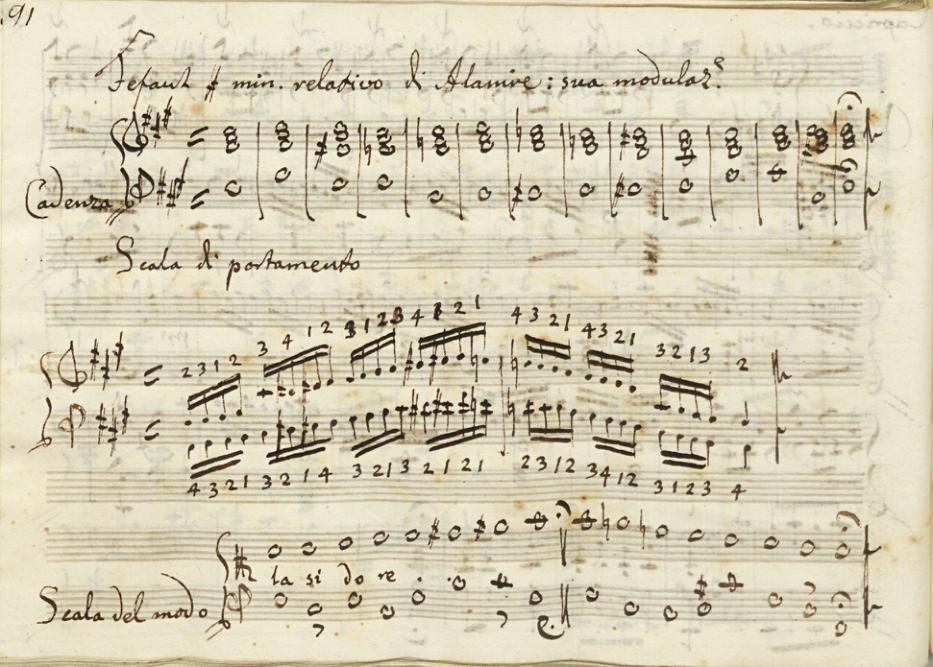 91
Fefaut # min. relativo di Alamire: sua modulaz.e
Cadenza
Scala di portamento
2 3 1 2 3 4 1 2 3 1 2 3 4 1 2 1 4 3 2 1 4 3 2 1 3 2 1 3 2
4 3 2 1 3 2 1 4 3 2 1 3 2 1 2 1 2 3 1 2 3 4 1 2 3 1 2 3 4
la si do re
Scala del modo